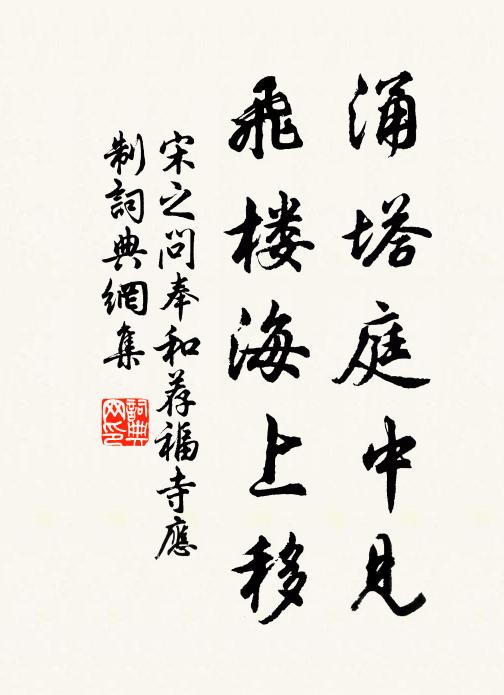 涌塔庭中见
飛楼海上移
宋之问奉和荐福寺應
制詞典網集
詞典网印